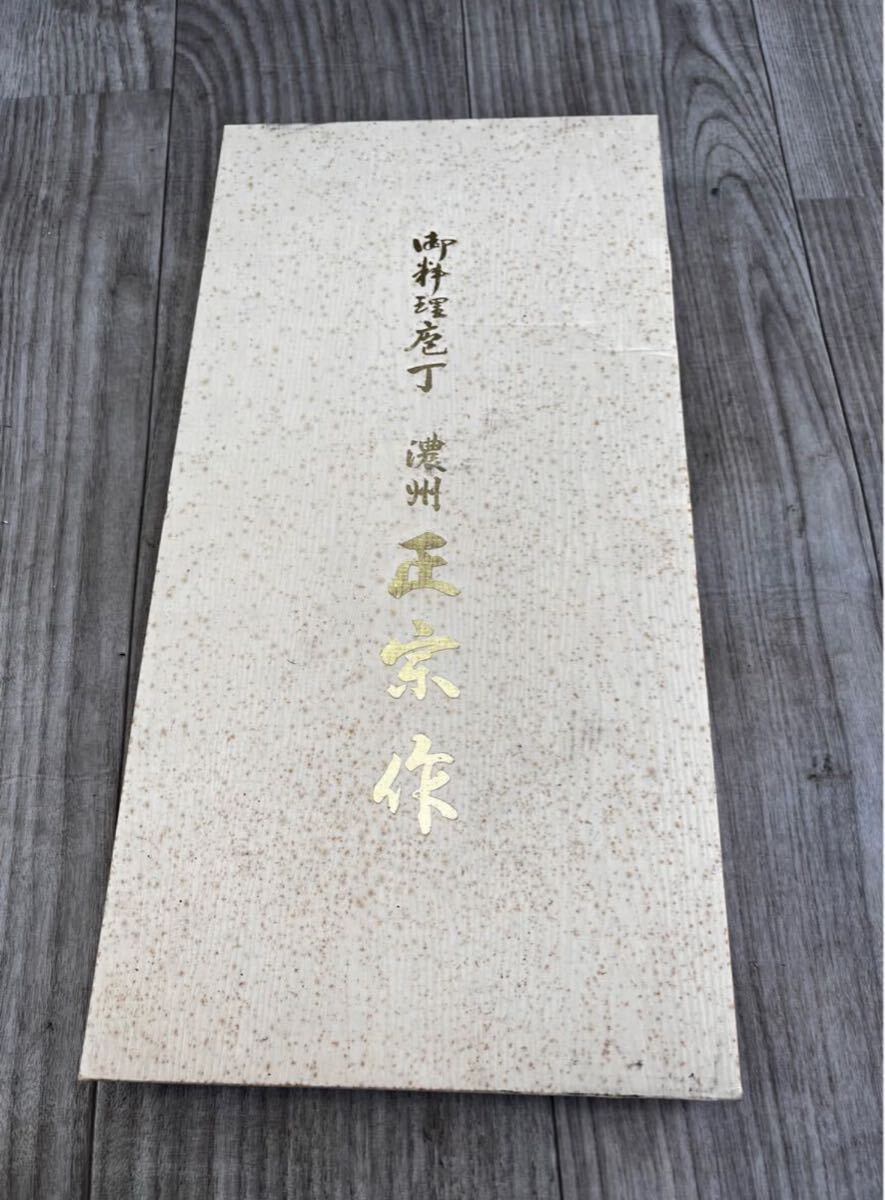 御料理庖丁 濃州 正宗作